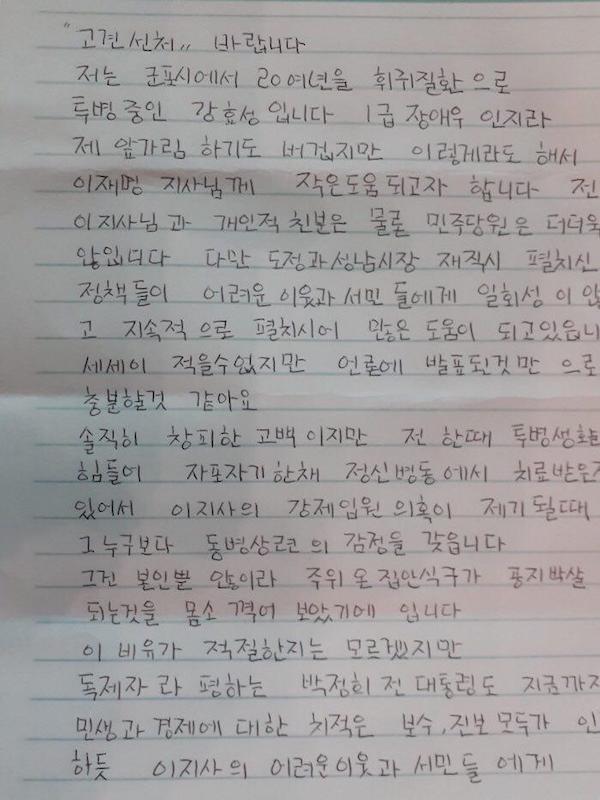 "고견선처" 바랍니다
저는 군포시에서 20여년을 휘귀질환으로
투병중인 강효성입니다 1급 장애우 인지라
제 앞가림 하기도 버겁지만 이렇게라도 해서
이재명 지사님께 작은도움되고자 합니다 전
이지사님과 개인적친분은 물론 민주당원은 더더욱
않입니다 다만 도정과성남시장 재직시 펼치신
정책들이 어려운이웃과서민들에게 일회성이
고 지속적으로 펼치시어 많은 도움이 되고있읍니
세세이 적을수없지만 언론에 발표된것만으로
충분할것 같아요
솔직히 창피한 고백이지만 전 한때 투병생활
힘들어 자포자기한채 정신병동에서 치료받은
있어서 이지사의 강제입원 의혹이 제기될때
그누구보다 동병상련의 감정을 갖읍니다
그건 본인뿐 안이라 주위 온집안식구가 풍지박살
되는것을 몸소 껵어 보았기에 입니다
이 비유가 적절한지는 모르겠지만
독제자라 평하는 박정희전대통령도 지금까지
민생과 경제에 대한 치적은 보수,진보모두가 인
하듯 이지사의 어려운이웃과 서민들에게